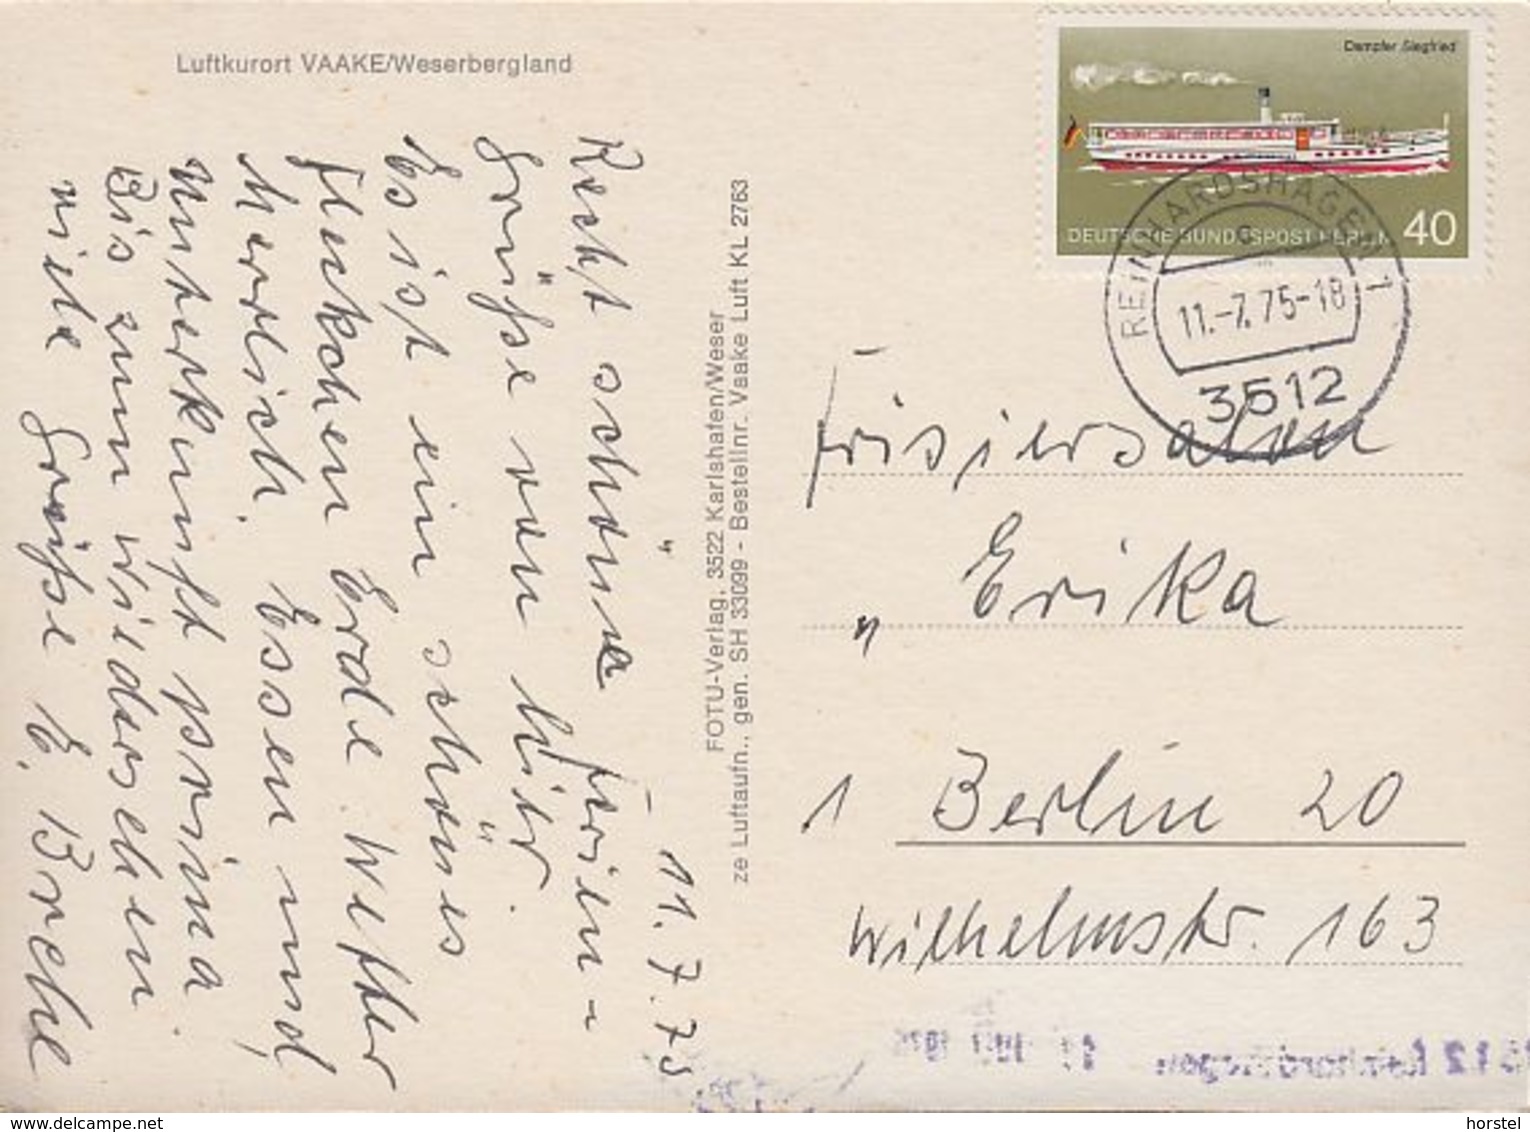 Luftkurort VAAKE/Weserbergland
11.7.75
Recht schöne Ferien-
grüße von hier.
Es ist ein schönes
Fleckchen Erde. Wetter
herrlich. Essen und
Unterkunft prima.
Bis zum Wiedersehen
viele Grüße E.
FOTU-Verlag, 3522 Karlshafen/Weser
ze Luftaufn., gen. SH 33099 - Bestellnr. Vaake Luft KL 2763
Dampfer Siegfried
DEUTSCHE BUNDESPOST BERLIN 40
REINHARDSHAGEN 1
11.-7.75-18
3512
Frisiersalon
"Erika"
1 Berlin 20
Wilhelmstr. 163
www.delcampe.net
horstel